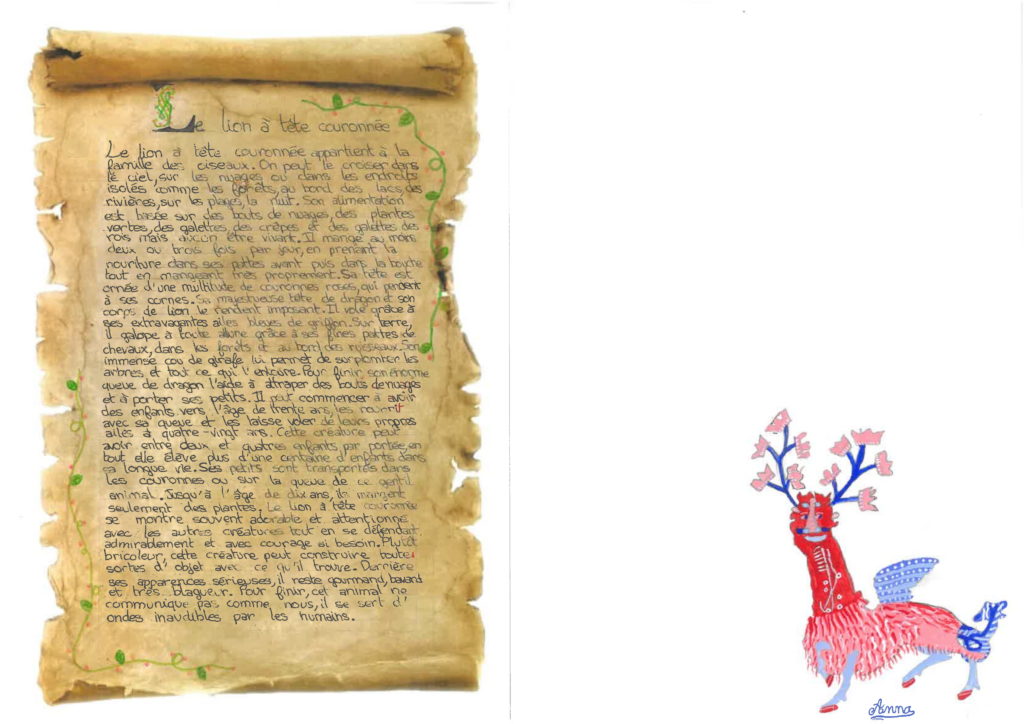 Le lion à tête couronnée
Le lion à tête couronnée appartient à la
famille des oiseaux. On peut le croiser dans
le ciel, sur les nuages ou dans les endroits
isolés comme les forêts, au bord des lacs, des
rivières, sur les plages, la nuit. Son alimentation
est basée sur des bouts de nuages, des plantes
vertes, des galettes, des crêpes et des galettes des
rois mais aucun être vivant. Il mange au moins
deux ou trois fois par jour, en prenant sa
nouriture dans ses pattes avant puis dans la bouche
tout en mangeant très proprement. Sa tête est
ornée d'une multitude de couronnes roses, qui pendent
à ses cornes. Sa majestueuse tête de dragon et son
corps de lion le rendent imposant. Il vole grâce à
ses extravagantes ailes bleues de griffon. Sur terre,
il galope à toute allure grâce à ses fines pattes de
chevaux, dans les forêts et au bord des ruisseaux. Son
immense cou de girafe lui permet de surplomber les
arbres et tout ce qui l'entoure. Pour finir, son énorme
queue de dragon l'aide à attraper des bouts de nuages
et à porter ses petits. Il peut commencer à avoir
des enfants vers l'âge de trente ans, les nourrit
avec sa queue et les laisse voler de leurs propres
ailes à quatre-vingt ans. Cette créature peut
avoir entre deux et quatres enfants par portée, en
tout elle élève plus d'une centaine d'enfants dans
sa longue vie. Ses petits sont transportés dans
les couronnes ou sur la queue de ce gentil
animal. Jusqu'à l'âge de dix ans, ils mangent
seulement des plantes. Le lion à tête couronnée
se montre souvent adorable et attentionné
avec les autres créatures tout en se défendant
admirablement et avec courage si besoin. Plutôt
bricoleur, cette créature peut construire toute
sortes d'objet avec ce qu'il trouve. Derrière
ses apparences sérieuses, il reste gourmand, bavard
et très blagueur. Pour finir, cet animal ne
communique pas comme nous, il se sert d'
ondes inaudibles par les humains.
Anna